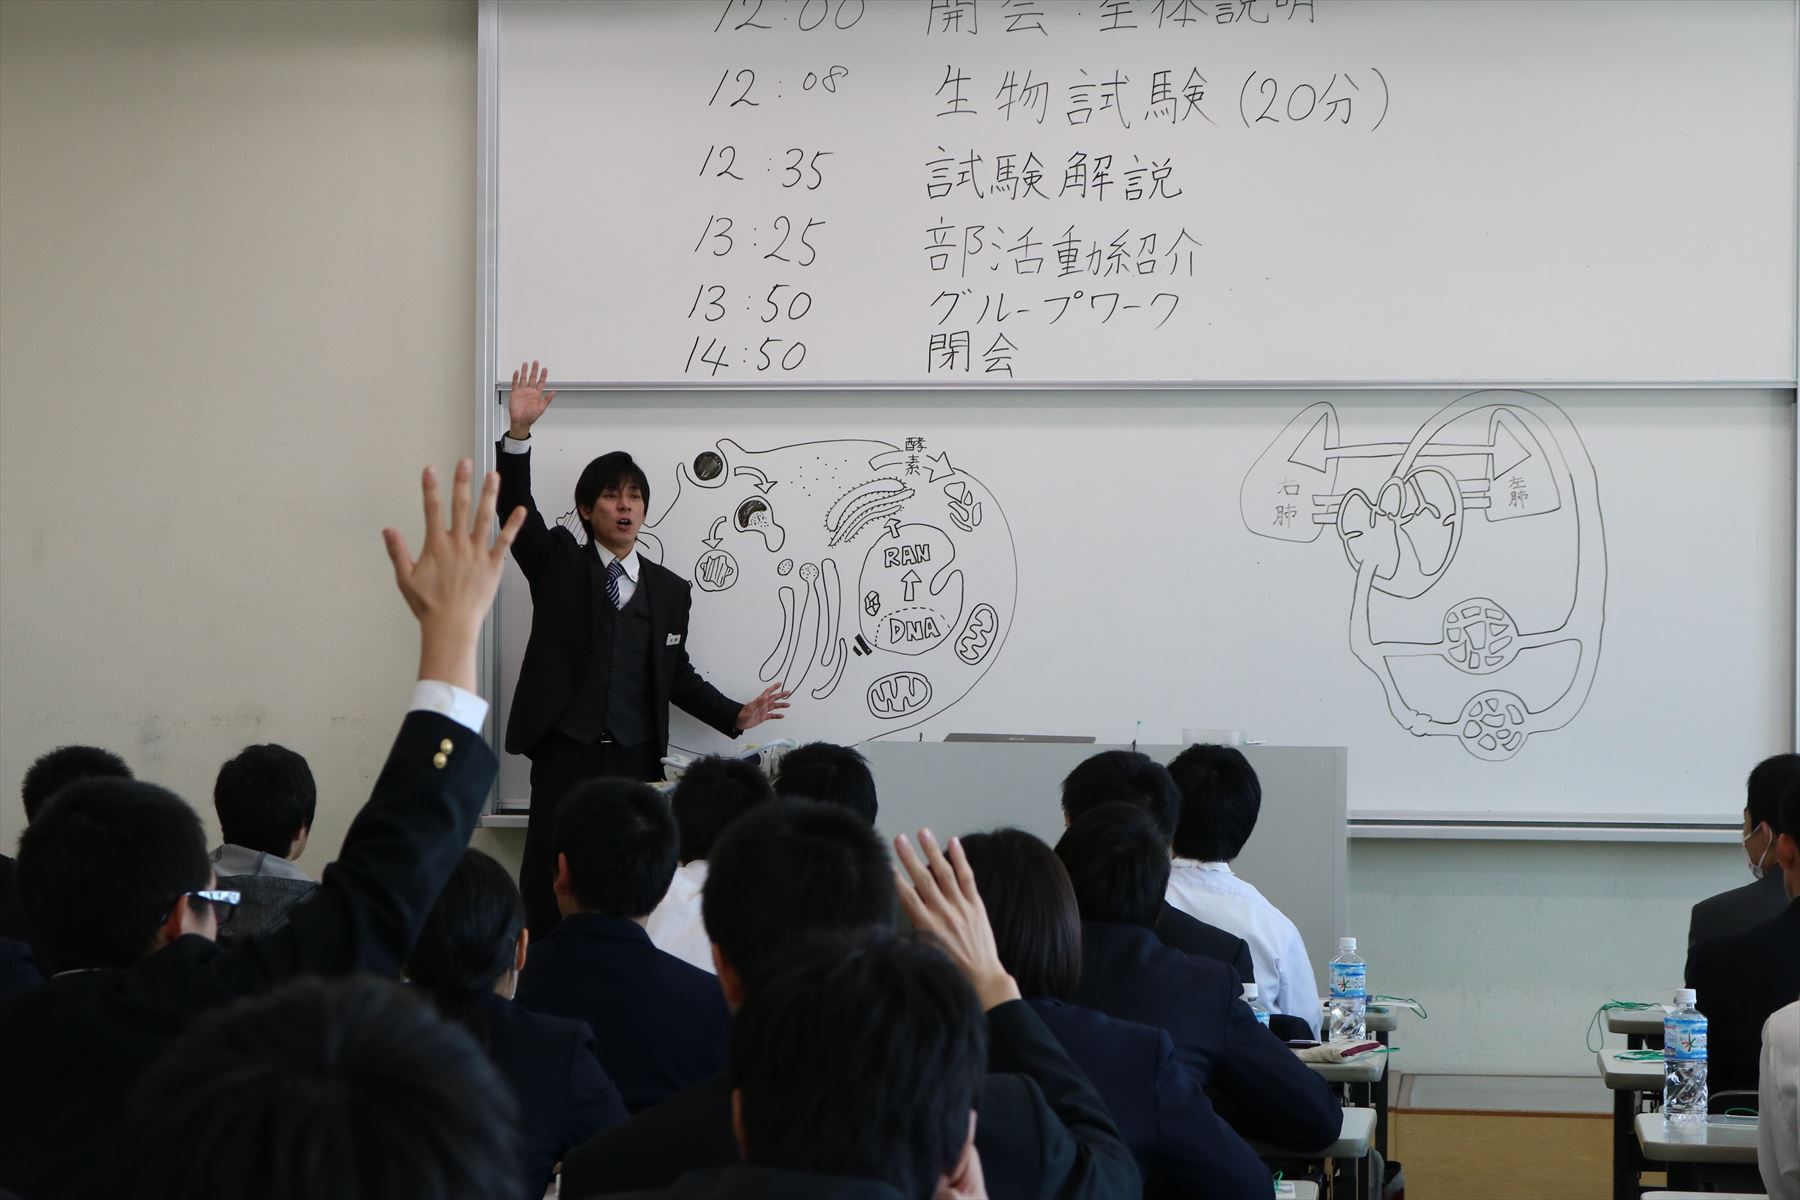 12:00 開会・全体説明
12:08 生物試験(20分)
12:35 試験解説
13:25 部活動紹介
13:50 グループワーク
14:50 閉会
酵素
RAN
DNA
右肺
左肺
水